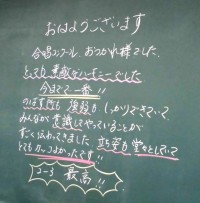 おはようございます
合唱コンクール、おつかれ様でした。
とっても素敵なハーモニーでした
今までで一番!!
のばす所も強弱もしっかりできていて、
みんなが意識してやっていることが
すごく伝わってきました 立ち姿も堂々としていて
とてもカッコよかったです!!
2-3 最高!!